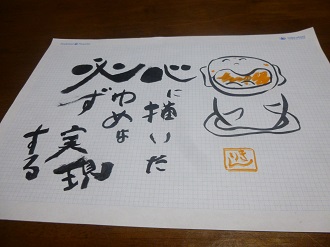 心に描いた
ゆめは
必ず
実現
する